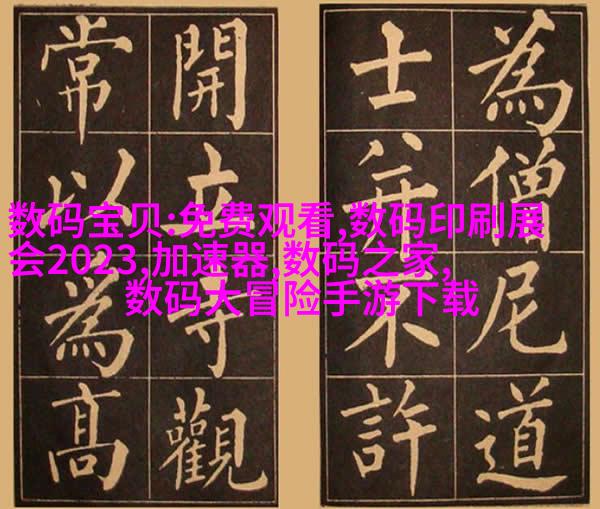 為僧尼道
士并不許
開立寺觀
常以為高
数码宝贝·免费观看,数码印刷展
会2023,加速器,数码之家,
数码大冒险手游下载